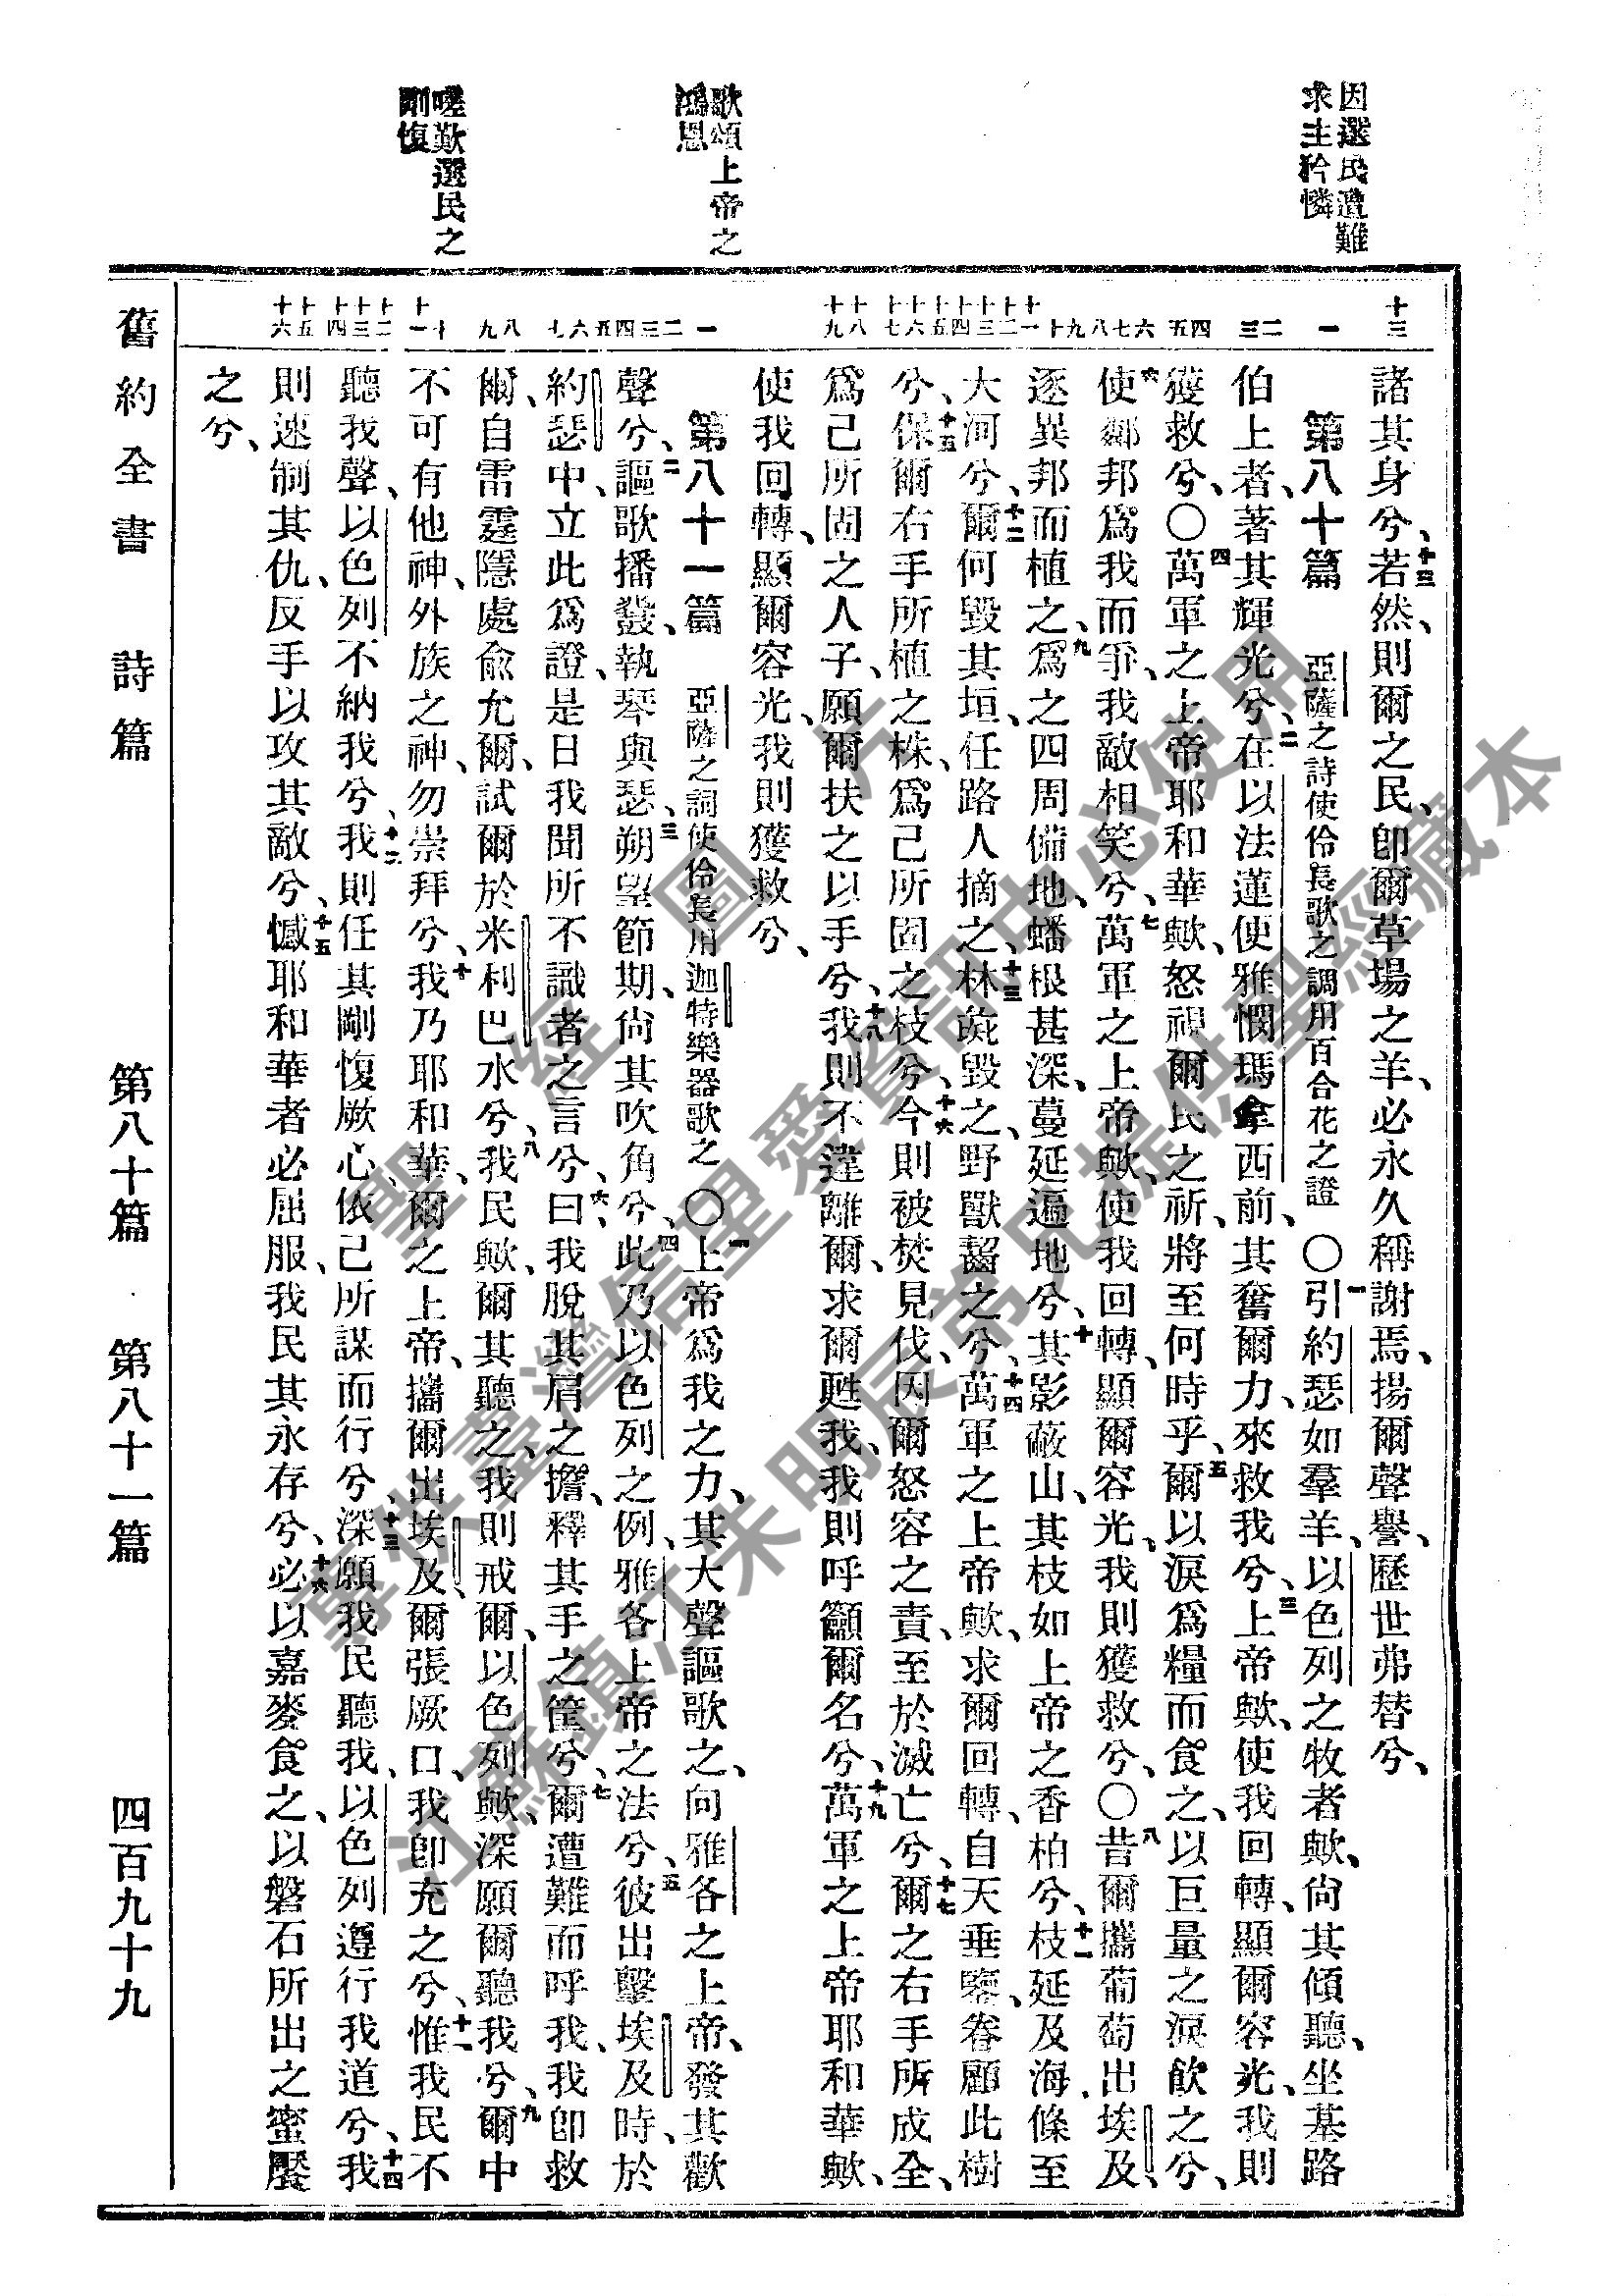 因選民遭難
求主矜憐
歌頌上帝之
鴻恩
嗟歎選民之
剛愎
十三 一 二 三 四 五 六 七 八 九 十 十一 十二 十三 十四 十五 十六 十七 十八 十九 一 二 三 四 五 六 七 八 九 十 十一 十二 十三 十四 十五 十六
諸其身兮、十三若然、則爾之民、卽爾草場之羊、必永久稱謝焉、揚爾聲譽、歷世弗替兮、
第八十篇 亞薩之詩使伶長歌之調用百合花之證 〇一引約瑟如羣羊、以色列之牧者歟、尙其傾聽、坐基路
伯上者、著其輝光兮、二在以法蓮便雅憫瑪拿西前、其奮爾力、來救我兮、三上帝歟、使我回轉、顯爾容光、我則
獲救兮、〇四萬軍之上帝耶和華歟、怒視爾民之祈、將至何時乎、五爾以淚爲糧而食之、以巨量之淚飮之兮、
六使鄰邦爲我而爭、我敵相笑兮、七萬軍之上帝歟、使我回轉、顯爾容光、我則獲救兮、〇八昔爾攜葡萄出埃及、
逐異邦而植之、九爲之四周備地、蟠根甚深、蔓延遍地兮、十其影蔽山、其枝如上帝之香柏兮、十一枝延及海、條至
大河兮、十二爾何毀其垣、任路人摘之、十三林㹠毀之、野獸齧之兮、十四萬軍之上帝歟、求爾回轉、自天垂鑒、眷顧此樹
兮、十五保爾右手所植之株、爲己所固之枝兮、十六今則被焚見伐、因爾怒容之責、至於滅亡兮、十七爾之右手所成全、
爲己所固之人子、願爾扶之以手兮、十八我則不違離爾、求爾甦我、我則呼籲爾名兮、十九萬軍之上帝耶和華歟、
使我回轉、顯爾容光、我則獲救兮、
第八十一篇 亞薩之詞使伶長用迦特樂器歌之 〇一上帝爲我之力、其大聲謳歌之、向雅各之上帝、發其歡
聲兮、二謳歌播鼗、執琴與瑟、三朔望節期、尙其吹角兮、四此乃以色列之例、雅各上帝之法兮、五彼出擊埃及時、於
約瑟中、立此爲證、是日我聞所不識者之言兮、六曰、我脫其肩之擔、釋其手之筐兮、七爾遭難而呼我、我卽救
爾、自雷霆隱處俞允爾、試爾於米利巴水兮、八我民歟、爾其聽之、我則戒爾、以色列歟、深願爾聽我兮、九爾中
不可有他神、外族之神、勿崇拜兮、十我乃耶和華、爾之上帝、攜爾出埃及、爾張厥口、我卽充之兮、十一惟我民不
聽我聲、以色列不納我兮、十二我則任其剛愎厥心、依己所謀而行兮、十三深願我民聽我、以色列遵行我道兮、十四我
則速制其仇、反手以攻其敵兮、十五憾耶和華者必屈服、我民其永存兮、十六必以嘉麥食之、以磐石所出之蜜饜
之兮、
舊約全書 詩篇 第八十篇 第八十一篇 四百九十九
聖經圖片
專供臺灣信望愛資訊中心使用
江蘇鎮江朱明辰常見提供聖經藏本